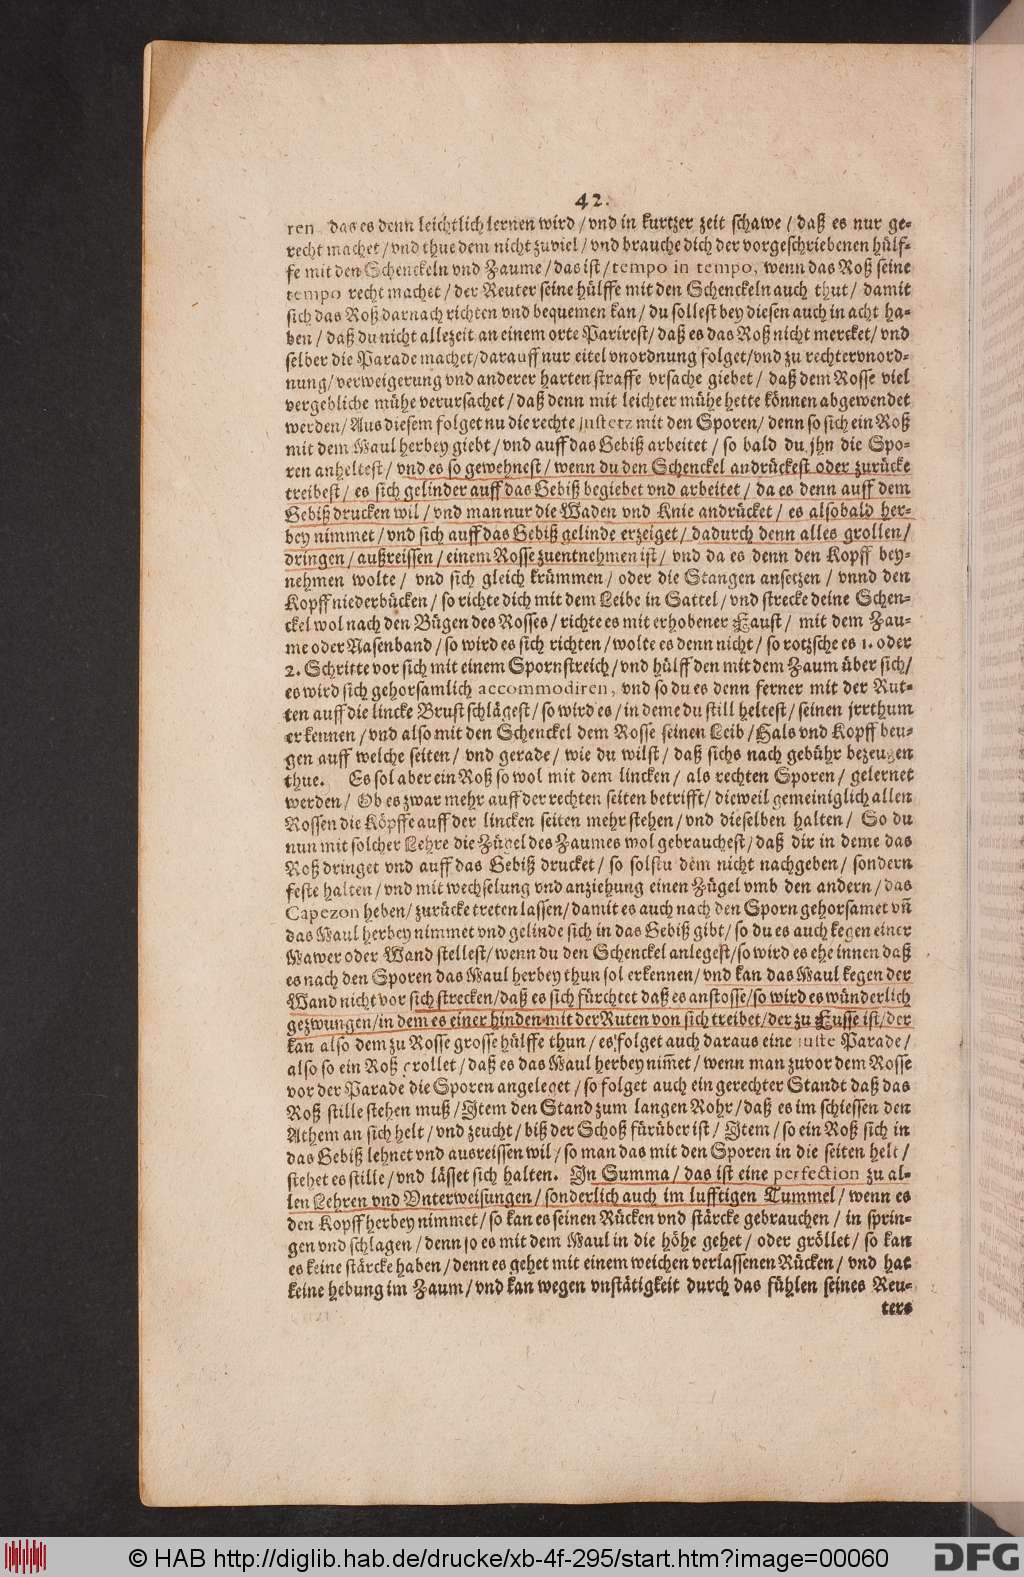 42.
ren das es denn leichtlich lernen wird / vnd in kurtzer zeit schawe / daß es nur ge-
recht machet / vnd thue dem nicht zuviel / vnd brauche dich der vorgeschriebenen hülf-
fe mit den Schenckeln vnd Zaume / das ist / tempo in tempo, wenn das Roß seine
tempo recht machet / der Reuter seine hülffe mit den Schenckeln auch thut / damit
sich das Roß darnach richten vnd bequemen kan / du sollest bey diesen auch in acht ha-
ben / daß du nicht allezeit an einem orte Parirest / daß es das Roß nicht mercket / vnd
selber die Parade machet / darauff nur eitel vnordnung folget / vnd zu rechter vnord-
nung / verweigerung vnd anderer harten straffe vrsache giebet / daß dem Rosse viel
vergebliche mühe verursachet / daß denn mit leichter mühe hette können abgewendet
werden / Aus diesem folget nu die rechte justetz mit den Sporen / denn so sich ein Roß
mit dem Maul herbey giebt / vnd auff das Gebiß arbeitet / so bald du jhn die Spo-
ren anheltest / vnd es so gewehnest / wenn du den Schenckel andrückest oder zurücke
treibest / es sich gelinder auff das Gebiß begiebet vnd arbeitet / da es denn auff dem
Gebiß drucken wil / vnd man nur die Waden vnd Knie andrücket / es alsobald her-
bey nimmet / vnd sich auff das Gebiß gelinde erzeiget / dadurch denn alles grollen /
dringen / außreissen / einem Rosse zuentnehmen ist / vnd da es denn den Kopff bey-
nehmen wolte / vnd sich gleich krümmen / oder die Stangen ansetzen / vnnd den
Kopff niederbücken / so richte dich mit dem Leibe in Sattel / vnd strecke deine Schen-
ckel wol nach den Bügen des Rosses / richte es mit erhobener Faust / mit dem Zau-
me oder Nasenband / so wird es sich richten / wolte es denn nicht / so rotzsche es 1. oder
2. Schritte vor sich mit einem Spornstreich / vnd hülff den mit dem Zaum über sich /
es wird sich gehorsamlich accommodiren, vnd so du es denn ferner mit der Rut-
ten auff die lincke Brust schlägest / so wird es / in deme du still heltest / seinen jrrthum
erkennen / vnd also mit den Schenckel dem Rosse seinen Leib / Hals vnd Kopff beu-
gen auff welche seiten / vnd gerade / wie du wilst / daß sichs nach gebühr bezeugen
thue. Es sol aber ein Roß so wol mit dem lincken / als rechten Sporen / gelernet
werden / Ob es zwar mehr auff der rechten seiten betrifft / dieweil gemeiniglich allen
Rossen die Köpffe auff der lincken seiten mehr stehen / vnd dieselben halten / So du
nun mit solcher Lehre die Zügel des Zaumes wol gebrauchest / daß dir in deme das
Roß dringet vnd auff das Gebiß drucket / so solstu dem nicht nachgeben / sondern
feste halten / vnd mit wechselung vnd anziehung einen Zügel vmb den andern / das
Capezon heben / zurücke treten lassen / damit es auch nach den Sporn gehorsamet vñ
das Maul herbey nimmet vnd gelinde sich in das Gebiß gibt / so du es auch kegen einer
Mawer oder Wand stellest / wenn du den Schenckel anlegest / so wird es ehe innen daß
es nach den Sporen das Maul herbey thun sol erkennen / vnd kan das Maul kegen der
Wand nicht vor sich strecken / daß es sich fürchtet daß es anstosse / so wird es wünderlich
gezwungen / in dem es einer hinden mit der Ruten von sich treibet / der zu Fusse ist / der
kan also dem zu Rosse grosse hülffe thun / es folget auch daraus eine juste Parade /
also so ein Roß grollet / daß es das Maul herbey nim̃et / wenn man zuvor dem Rosse
vor der Parade die Sporen angeleget / so folget auch ein gerechter Standt daß das
Roß stille stehen muß / Jtem den Stand zum langen Rohr / daß es im schiessen den
Athem an sich helt / vnd zeucht / biß der Schoß fürüber ist / Jtem / so ein Roß sich in
das Gebiß lehnet vnd ausreissen wil / so man das mit den Sporen in die seiten helt /
stehet es stille / vnd lässet sich halten. Jn Summa / das ist eine perfection zu al-
len Lehren vnd Vnterweisungen / sonderlich auch im lufftigen Tummel / wenn es
den Kopff herbey nimmet / so kan es seinen Rücken vnd stärcke gebrauchen / in sprin-
gen vnd schlagen / denn so es mit dem Maul in die höhe gehet / oder gröllet / so kan
es keine stärcke haben / denn es gehet mit einem weichen verlassenen Rücken / vnd hat
keine hebung im Zaum / vnd kan wegen vnstätigkeit durch das fühlen seines Reu-
ters
© HAB http://diglib.hab.de/drucke/xb-4f-295/start.htm?image=00060
DFG